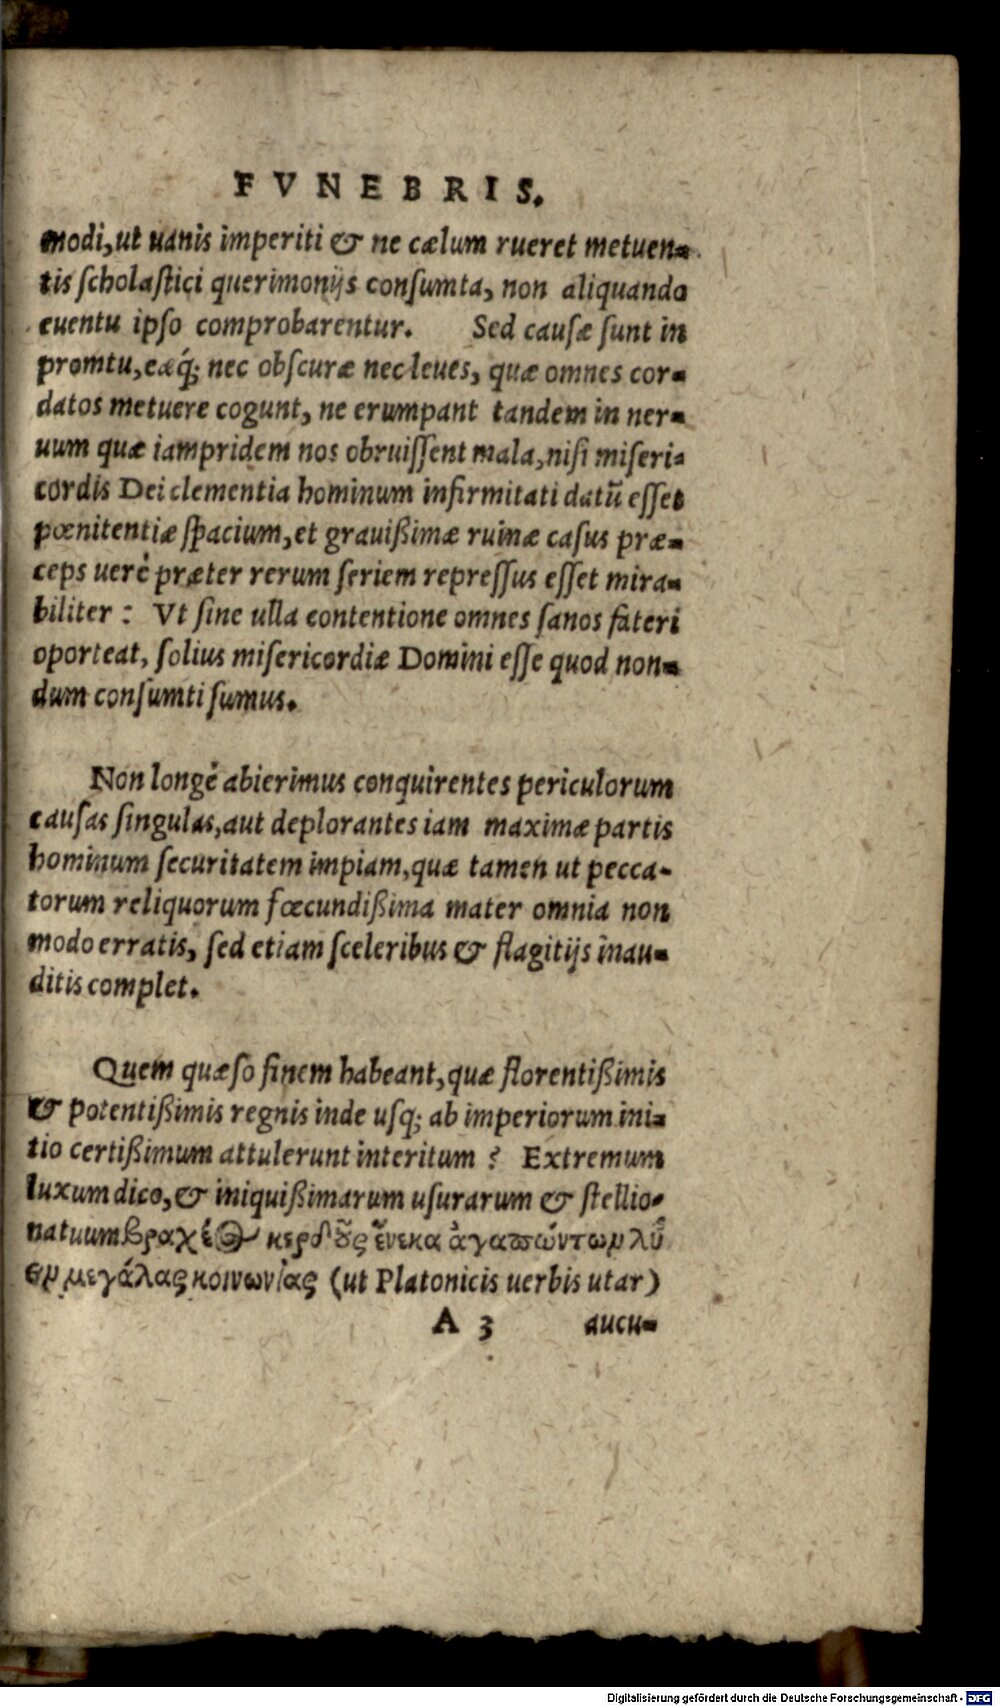 FVNEBRIS.
modi, ut uanis imperiti & ne cælum rueret metuen-
tis scholastici querimonijs consumta, non aliquando
euentu ipso comprobarentur. Sed causæ sunt in
promtu, eæq́; nec obscuræ nec leues, quæ omnes cor-
datos metuere cogunt, ne erumpant tandem in ner-
uum quæ iampridem nos obruissent mala, nisi miseri-
cordis Dei clementia hominum infirmitati datū esset
pœnitentiæ spacium, et grauißimæ ruinæ casus præ-
ceps uerè præter rerum seriem repressus esset mira-
biliter: Vt sine ulla contentione omnes sanos fateri
oporteat, solius misericordiæ Domini esse quod non-
dum consumti sumus.
Non longè abierimus conquirentes periculorum
causas singulas, aut deplorantes iam maximæ partis
hominum securitatem impiam, quæ tamen ut pecca-
torum reliquorum fœcundißima mater omnia non
modo erratis, sed etiam sceleribus & flagitijs inau-
ditis complet.
Quem quæso finem habeant, quæ florentißimis
& potentißimis regnis inde usq; ab imperiorum ini-
tio certißimum attulerunt interitum? Extremum
luxum dico, & iniquißimarum usurarum & stellio-
natuum βραχέος κερδοῦς ἕνεκα ἀγαπώντων λύ
ειν μεγάλας κοινωνίας (ut Platonicis uerbis utar)
A 3 aucu-
Digitalisierung gefördert durch die Deutsche Forschungsgemeinschaft - DFG